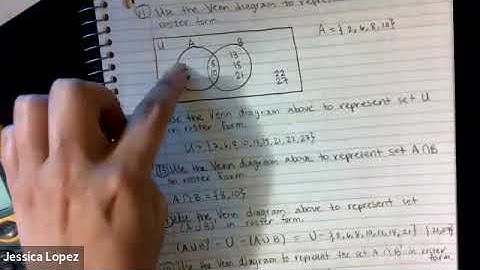 Use the Venn diagram to represent
roster form.
A = { 2, 6, 8, 10}
U
A
B
8
10
13
15
21
22
27
use the Venn diagram above to represent set U
in roster form.
Use the Venn diagram above to represent set A∩B
in roster form.
A∩B = {8, 10}
Use the Venn diagram above to represent set
(A∪B)' in roster form.
(A∪B)' = U - (A∪B) = U - {2, 6, 8, 10, 13, 15, 21}
Use the Venn diagram to represent the set A∩B' in roster
form.
Jessica Lopez